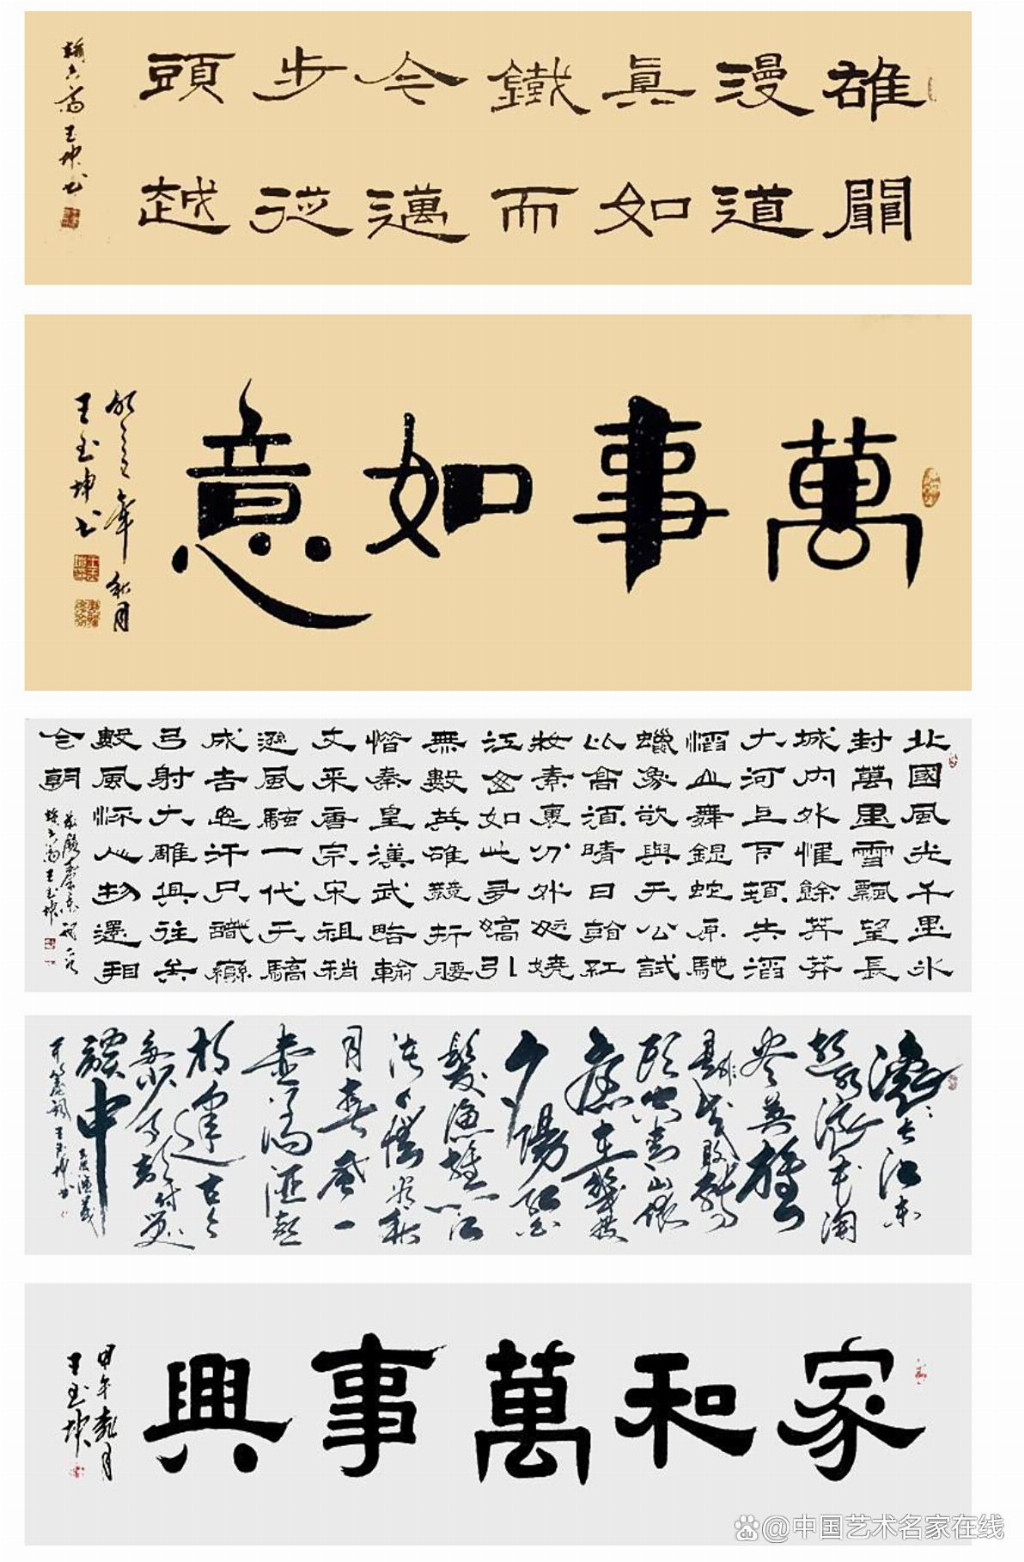 雄關
漫道
真如
鐵而
今邁
步從
頭越
萬事如意
年秋月
王玉坤书
北國風光千里冰
封萬里雪飄望長
城内外惟餘莽莽
大河上下頓失滔
滔山舞銀蛇原馳
蠟象欲與天公試
比高須晴日看紅
妝素裹分外妖嬈
江山如此多嬌引
無數英雄競折腰
惜秦皇漢武略輸
文采唐宗宋祖稍
遜風騷一代天驕
成吉思汗只識彎
弓射大雕俱往矣
數風流人物還看
今朝
王玉坤
滚滚長江東
逝水浪花淘
尽英雄
是非成敗轉
頭空青山依
舊在幾度
夕陽紅白
髮漁樵江
渚上慣看秋
月春風一
壺濁酒喜
相逢古今
多少事都付笑
談中
王玉坤书
家和萬事興
王玉坤
@中国艺术名家在线